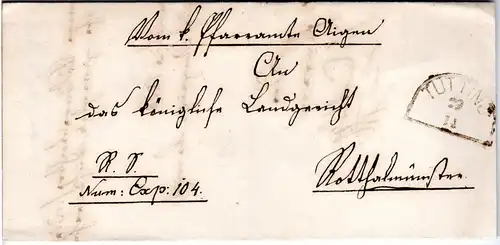 Vom k. Pfarramte Aigen
An
das königliche Landgericht
R. S.
Num: Exp: 104.
Rotthalmünster.
29
11